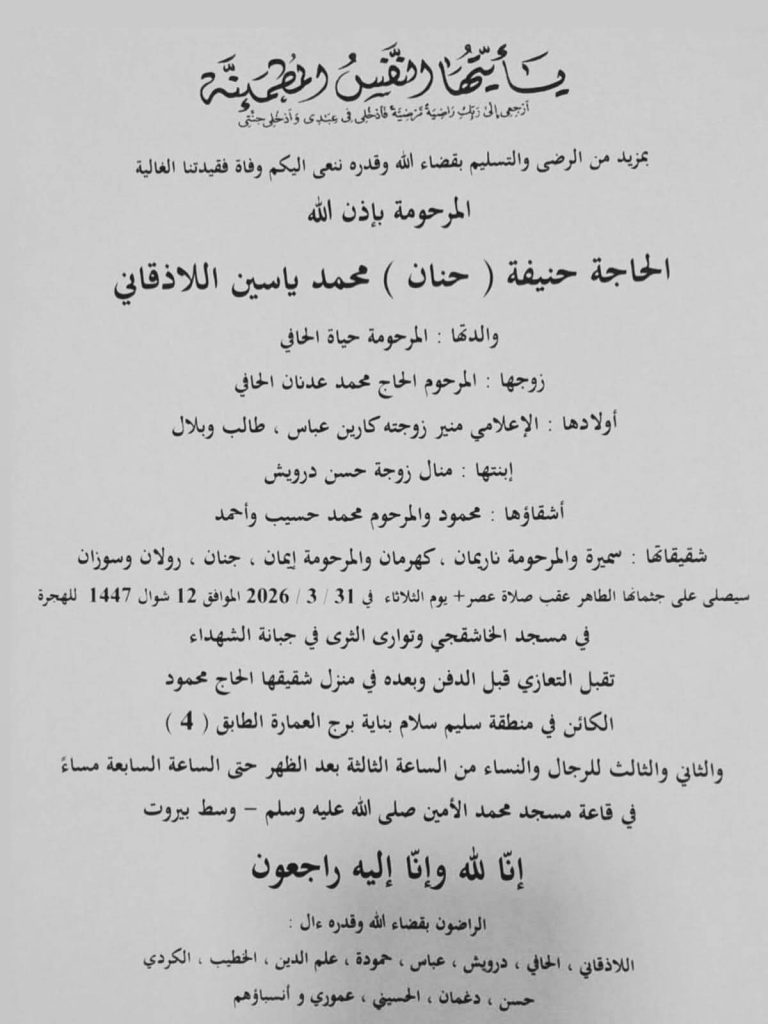 يَا أَيَّتُهَا النَّفْسُ المُطْمَئِنَّة
ارْجِعِي إِلَى رَبِّكِ رَاضِيَةً مَرْضِيَّةً فَادْخُلِي فِي عِبَادِي وَادْخُلِي جَنَّتِي
بمزيد من الرضى والتسليم بقضاء الله وقدره ننعى اليكم وفاة فقيدتنا الغالية
المرحومة بإذن الله
الحاجة حنيفة ( حنان ) محمد ياسين اللاذقاني
والدتها : المرحومة حياة الحافي
زوجها : المرحوم الحاج محمد عدنان الحافي
أولادها : الإعلامي منير زوجته كارين عباس ، طالب وبلال
إبنتها : منال زوجة حسن درويش
أشقاؤها : محمود والمرحوم محمد حسيب وأحمد
شقيقاتها : سميرة والمرحومة ناريمان ، كهرمان والمرحومة إيمان ، جنان ، رولان وسوزان
سيصلى على جثمانها الطاهر عقب صلاة عصر+ يوم الثلاثاء في 31 / 3 / 2026 الموافق 12 شوال 1447 للهجرة
في مسجد الخاشقجي وتوارى الثرى في جبانة الشهداء
تقبل التعازي قبل الدفن وبعده في منزل شقيقها الحاج محمود
الكائن في منطقة سليم سلام بناية برج العمارة الطابق ( 4 )
والثاني والثالث للرجال والنساء من الساعة الثالثة بعد الظهر حتى الساعة السابعة مساءً
في قاعة مسجد محمد الأمين صلى الله عليه وسلم – وسط بيروت
إنّا لله وإنّا إليه راجعون
الراضون بقضاء الله وقدره ءال :
اللاذقاني ، الحافي ، درويش ، عباس ، حمودة ، علم الدين ، الخطيب ، الكردي
حسن ، دغمان ، الحسيني ، عموري و أنسباؤهم